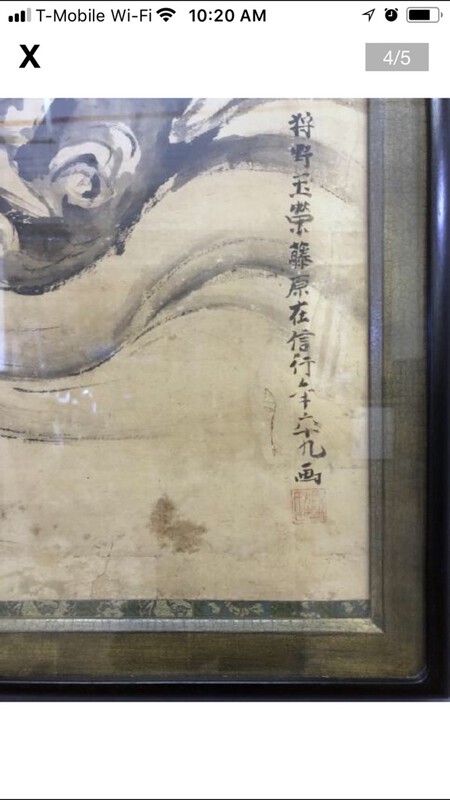 T-Mobile Wi-Fi 10:20 AM
X 4/5
狩野玉榮藤原在信行年六十九画